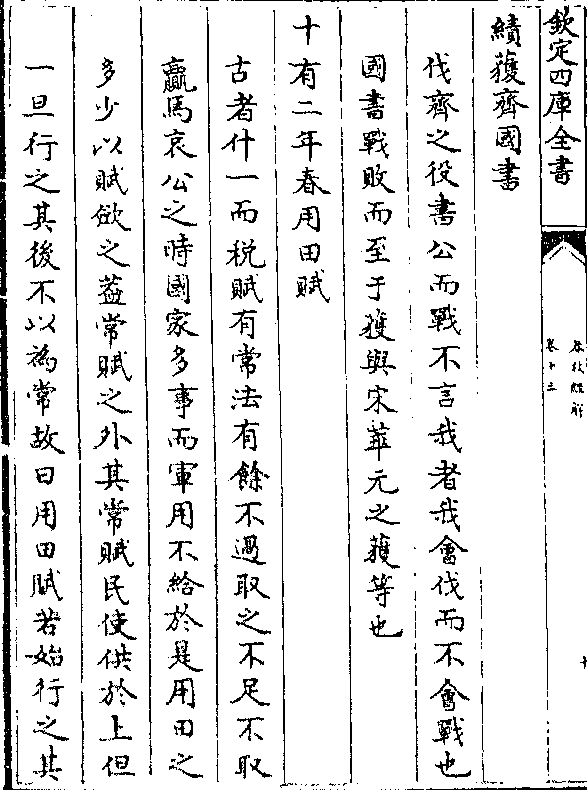 欽定四庫全書
春秋經解
卷十三
績獲齊國書
伐齊之役書公而戰不言我者我會伐而不會戰也
國書戰敗而至于獲與宋華元之獲等也
十有二年春用田賦
古者什一而税賦有常法有餘不過取之不足不取
贏焉哀公之時國家多事而軍用不給於是用田之
多少以賦斂之葢常賦之外其常賦民使供於上但
一旦行之其後不以為常故曰用田賦若始行之其